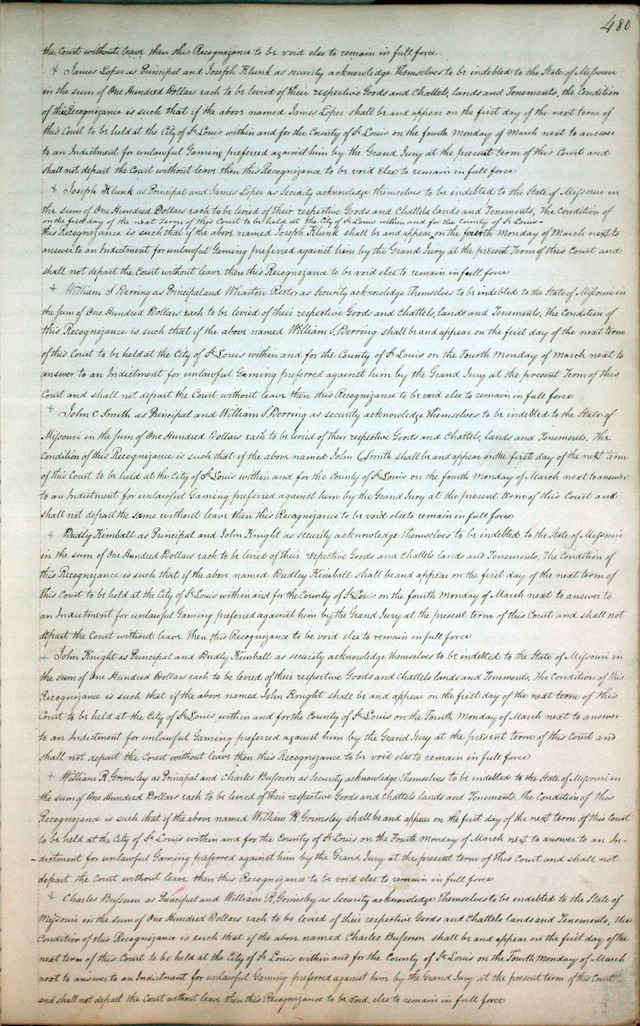 480
the Court without leave then this Recognizance to be void else to remain in full force.
+ James Loper as Principal and Joseph Klunk as security acknowledge themselves to be indebted to the State of Missouri
in the sum of One Hundred Dollars each to be levied of their respective Goods and Chattels, lands and Tenements, the Condition
of this Recognizance is such that if the above named James Loper shall be and appear on the first day of the next term of
this Court to be held at the City of St Louis within and for the County of St Louis on the fourth Monday of March next to answer
to an Indictment for unlawful Gaming preferred against him by the Grand Jury at the present term of this Court and
shall not depart the Court without leave then this Recognizance to be void else to remain in full force
+ Joseph Klunk as Principal and James Loper as Security acknowledge themselves to be indebted to the State of Missouri in
the sum of One Hundred Dollars each to be levied of their respective Goods and Chattels lands and Tenements, The Condition of
on the first day of the next term of this Court to be held at the City of St Louis within and for the County of St Louis
this Recognizance is such that if the above named Joseph Klunk shall be and appear on the fourth Monday of March next to
answer to an Indictment for unlawful Gaming preferred against him by the Grand Jury at the present Term of this Court and
shall not depart the Court without leave then this Recognizance to be void else to remain in full force
+ William S Derring as Principal and Wharton Rector as Security acknowledge Themselves to be indebted to the State of Missouri in
the sum of One Hundred Dollars each to be levied of their respective Goods and Chattels, lands and Tenements, The Condition of
this Recognizance is such that if the above named William S. Derring shall be and appear on the first day of the next term
of this Court to be held at the City of St Louis within and for the County of St Louis on the Fourth Monday of March next to
answer to an Indictment for unlawful Gaming preferred against him by the Grand Jury at the present Term of this
Court and shall not depart the Court without leave then this Recognizance to be void else to remain in full force
+ John C Smith as Principal and William S. Derring as security acknowledge themselves to be indebted to the State of
Missouri in the Sum of One Hundred Dollars each to be levied of their respective Goods and Chattels, lands and Tenements, The
Condition of this Recognizance is such that if the above named John C Smith shall be and appear on the first day of the next term
of this Court to be held at the City of St Louis within and for the County of St Louis on the fourth Monday of March next to answer
to an Indictment for unlawful Gaming preferred against him by the Grand Jury at the present term of this Court and
shall not depart the same without leave then this Recognizance to be void else to remain in full force
+ Dudly Kimball as Principal and John Knight as security acknowledge themselves to be indebted to the State of Missouri
in the sum of One Hundred Dollars each to be levied of their respective Goods and Chattels lands and Tenements, The Condition of
this Recognizance is such that if the above named Dudley Kimball shall be and appear on the first day of the next term of
this Court to be held at the City of St Louis within and for the County of St Lo on the fourth Monday of March next to answer to
an Indictment for unlawful Gaming preferred against him by the Grand Jury at the present term of this Court and shall not
depart the Court without leave Then this Recognizance to be void else to remain in full force
+ John Knight as Principal and Dudly Kimball as security acknowledge themselves to be indebted to the State of Missouri in
the sum of One Hundred Dollars each to be levied of their respective Goods and Chattels lands and Tenements, The Condition of this
Recognizance is such that if the above named John Knight shall be and appear on the first day of the next term of this
Court to be held at the City of St Louis, within and for the County of St Louis on the Fourth Monday of March next to answer
to an Indictment for unlawful Gaming preferred against him by the Grand Jury at the present term of this Court and
shall not depart the Court without leave then this Recognizance to be void else to remain in full force
+ William R. Grimsley as Principal and Charles Bussoun as Security acknowledge Themselves to be indebted to the State of Missouri in
the sum of One Hundred Dollars each to be levied of their respective Goods and chattels lands and Tenements, the Condition of this
Recognizance is such that if the above named William R Grimsley shall be and appear on the first day of the next term of this Court
to be held at the City of St Louis within and for the County of St Louis on the Fourth Monday of March next to answer to an In-
dictment for unlawful Gaming preferred against him by the Grand Jury at the present term of this Court and shall not
depart the Court without leave then this Recognizance to be void else to remain in full force
+ Charles Bussoun as Principal and William R. Grimsley as Security acknowledge Themselves to be indebted to the State of
Missouri in the sum of One Hundred Dollars each to be levied of their respective Goods and Chattels lands and Tenements, the
Condition of this Recognizance is such that if the above named Charles Bussoun shall be and appear on the first day of the
next term of this Court to be held at the City of St Louis within and for the County of St Louis on the Fourth Monday of March
next to answer to an Indictment for unlawful Gaming preferred against him by the Grand Jury at the present term of this Court
and shall not depart the Court without leave then this Recognizance to be void else to remain in full force